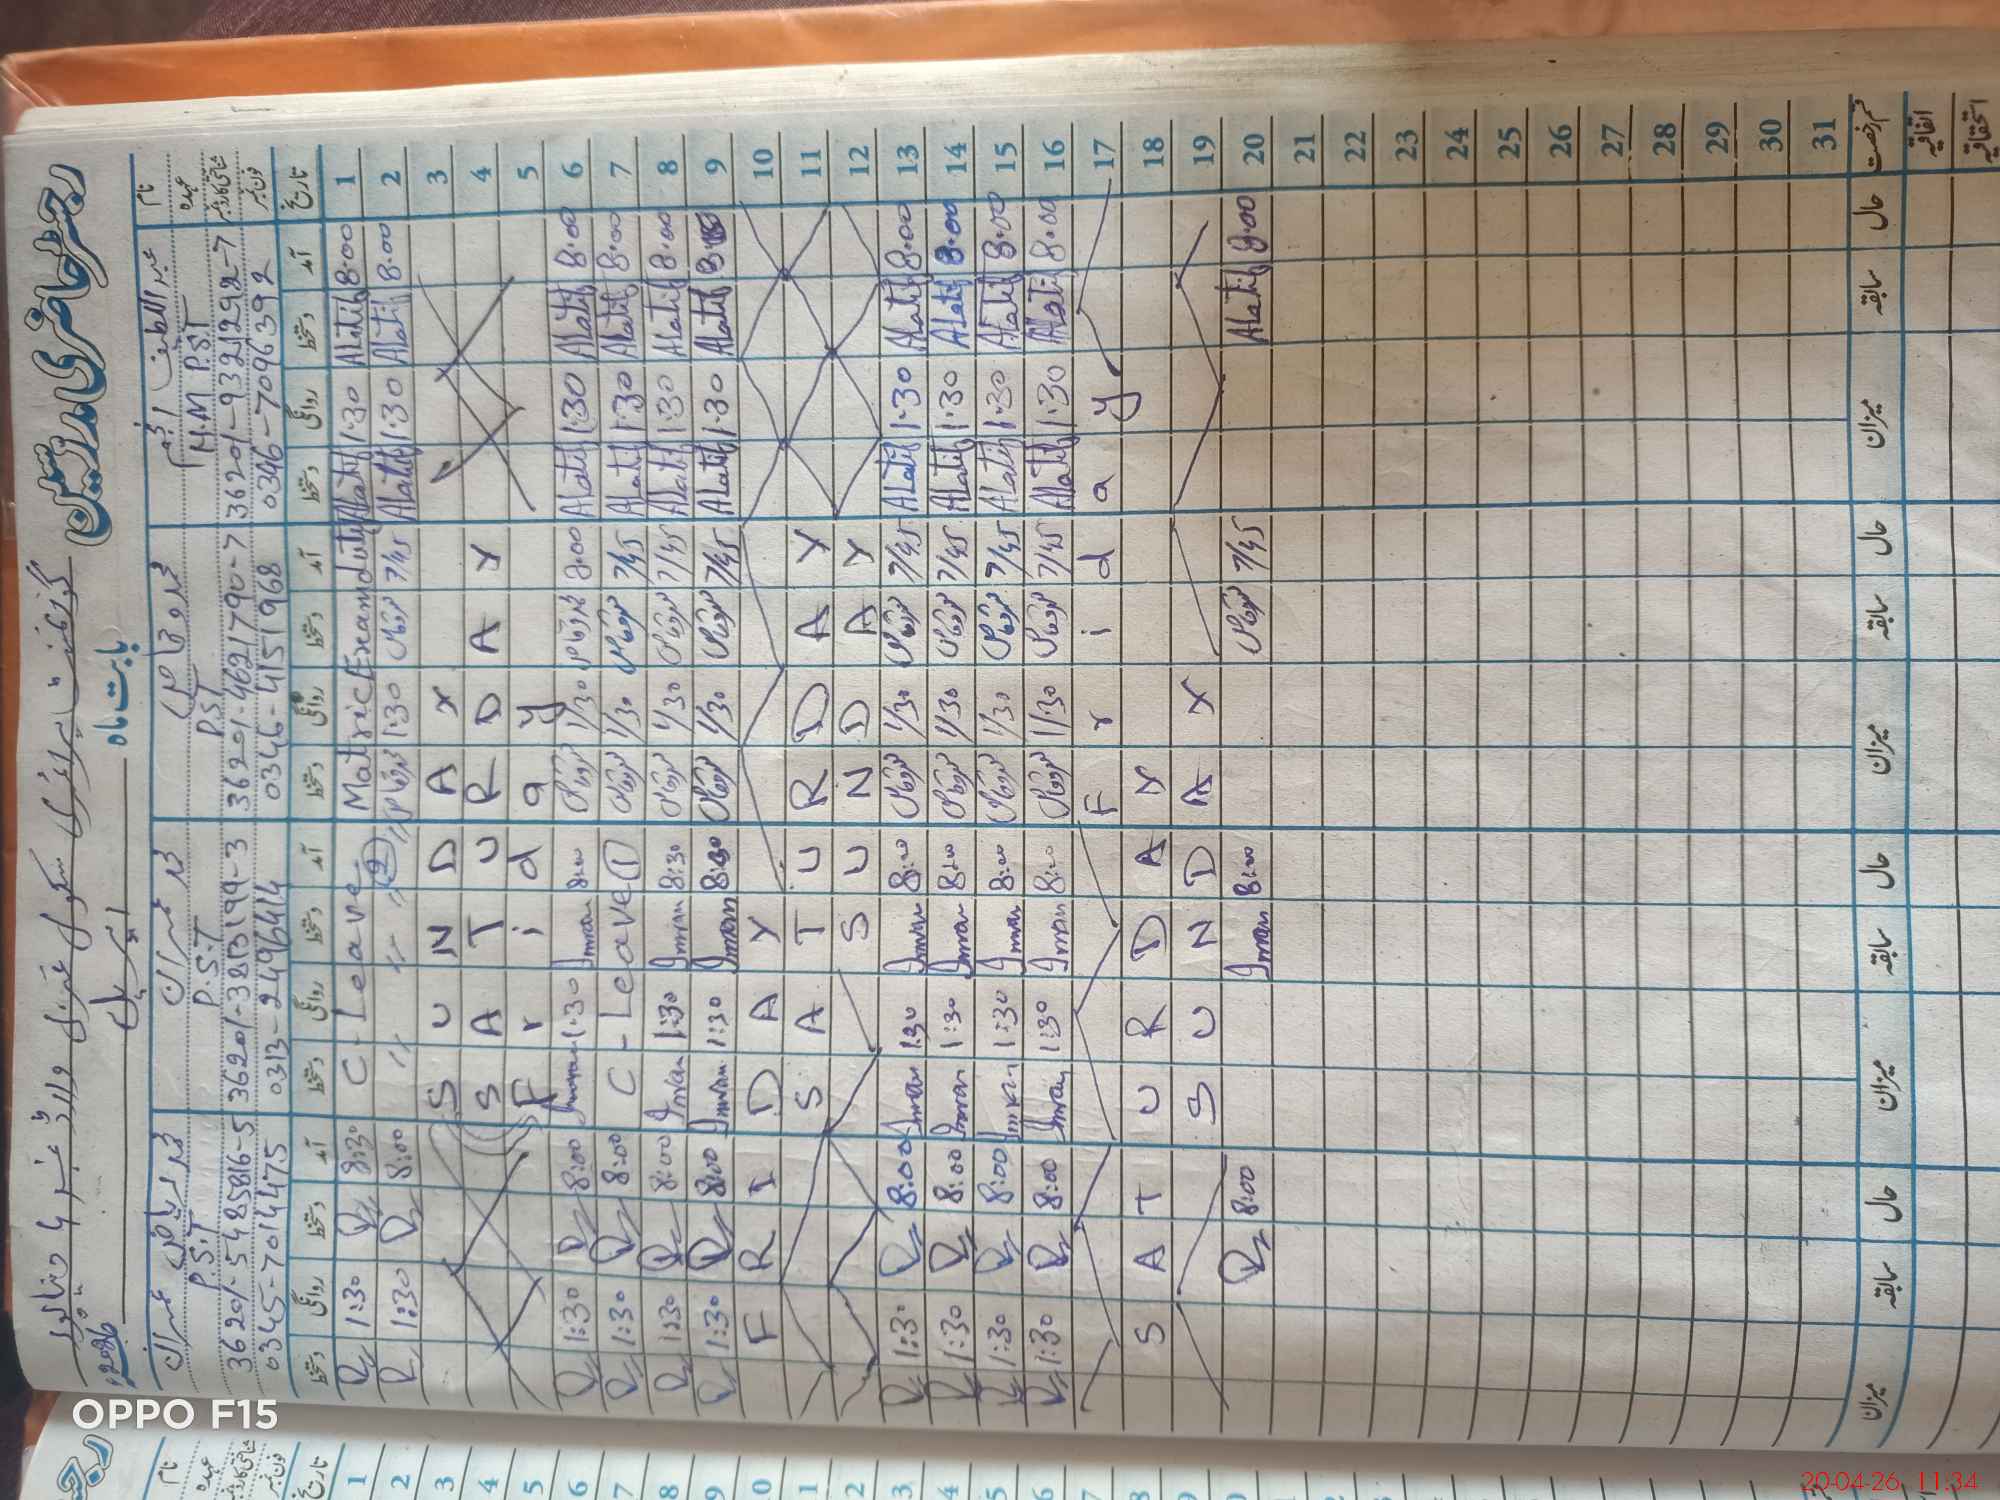 رجسٹر حاضری مدرسین
گورنمنٹ پرائمری سکول غربی وارڈ نمبر 4 دنیاپور
بابت ماہ اپریل 2026
نام عبداللطیف انجم محمد وقاص محمد عمران محمد ریاض عمران
عہدہ H.M P.S.T P.S.T P.S.T P.S.T
شناختی کارڈ نمبر 36201-9321292-7 36201-4621790-7 36201-3813199-3 36201-5485816-5
فون نمبر 0346-7096392 0346-4151968 0313-2496414 0345-7014475
تاریخ آمد دستخط روانگی دستخط آمد دستخط روانگی دستخط آمد دستخط روانگی دستخط آمد دستخط روانگی دستخط
1 8:00 ALatif 1:30 ALatif Matric Exam duty C-Leave 8:30 1:30
2 8:00 ALatif 1:30 ALatif 7/45 وقاص 1:30 وقاص " " " (2) 8:00 1:30
3 S U N D A Y
4 S A T U R D A Y
5 F r i d a y
6 8:00 ALatif 1:30 ALatif 8:00 وقاص 1/30 وقاص 8:00 Imran 1:30 Imran 8:00 1:30
7 8:00 ALatif 1:30 ALatif 7/45 وقاص 1/30 وقاص C-Leave (1) 8:00 1:30
8 8:00 ALatif 1:30 ALatif 7/45 وقاص 1/30 وقاص 8:30 Imran 1:30 Imran 8:00 1:30
9 ALatif 1:30 ALatif 7/45 وقاص 1/30 وقاص 8:30 Imran 1:30 Imran 8:00 1:30
10 F R I D A Y
11 S A T U R D A Y
12 S U N D A Y
13 8:00 ALatif 1:30 ALatif 7/45 وقاص 1/30 وقاص 8:00 Imran 1:30 Imran 8:00 1:30
14 8:00 ALatif 1:30 ALatif 7/45 وقاص 1/30 وقاص 8:00 Imran 1:30 Imran 8:00 1:30
15 8:00 ALatif 1:30 ALatif 7/45 وقاص 1/30 وقاص 8:00 Imran 1:30 Imran 8:00 1:30
16 8:00 ALatif 1:30 ALatif 7/45 وقاص 1/30 وقاص 8:00 Imran 1:30 Imran 8:00 1:30
17 F r i d a y
18 S A T U R D A Y
19 S U N D A Y
20 8:00 ALatif 7/45 وقاص 8:00 Imran 8:00
21
22
23
24
25
26
27
28
29
30
31
قسم رخصت حال سابقہ میزان حال سابقہ میزان حال سابقہ میزان حال سابقہ میزان
اتفاقیہ
استحقاقیہ
نام
عہدہ
شناختی کارڈ نمبر
فون نمبر
تاریخ
1
2
3
4
5
6
7
8
9
10
OPPO F15
20-04-26 11:34